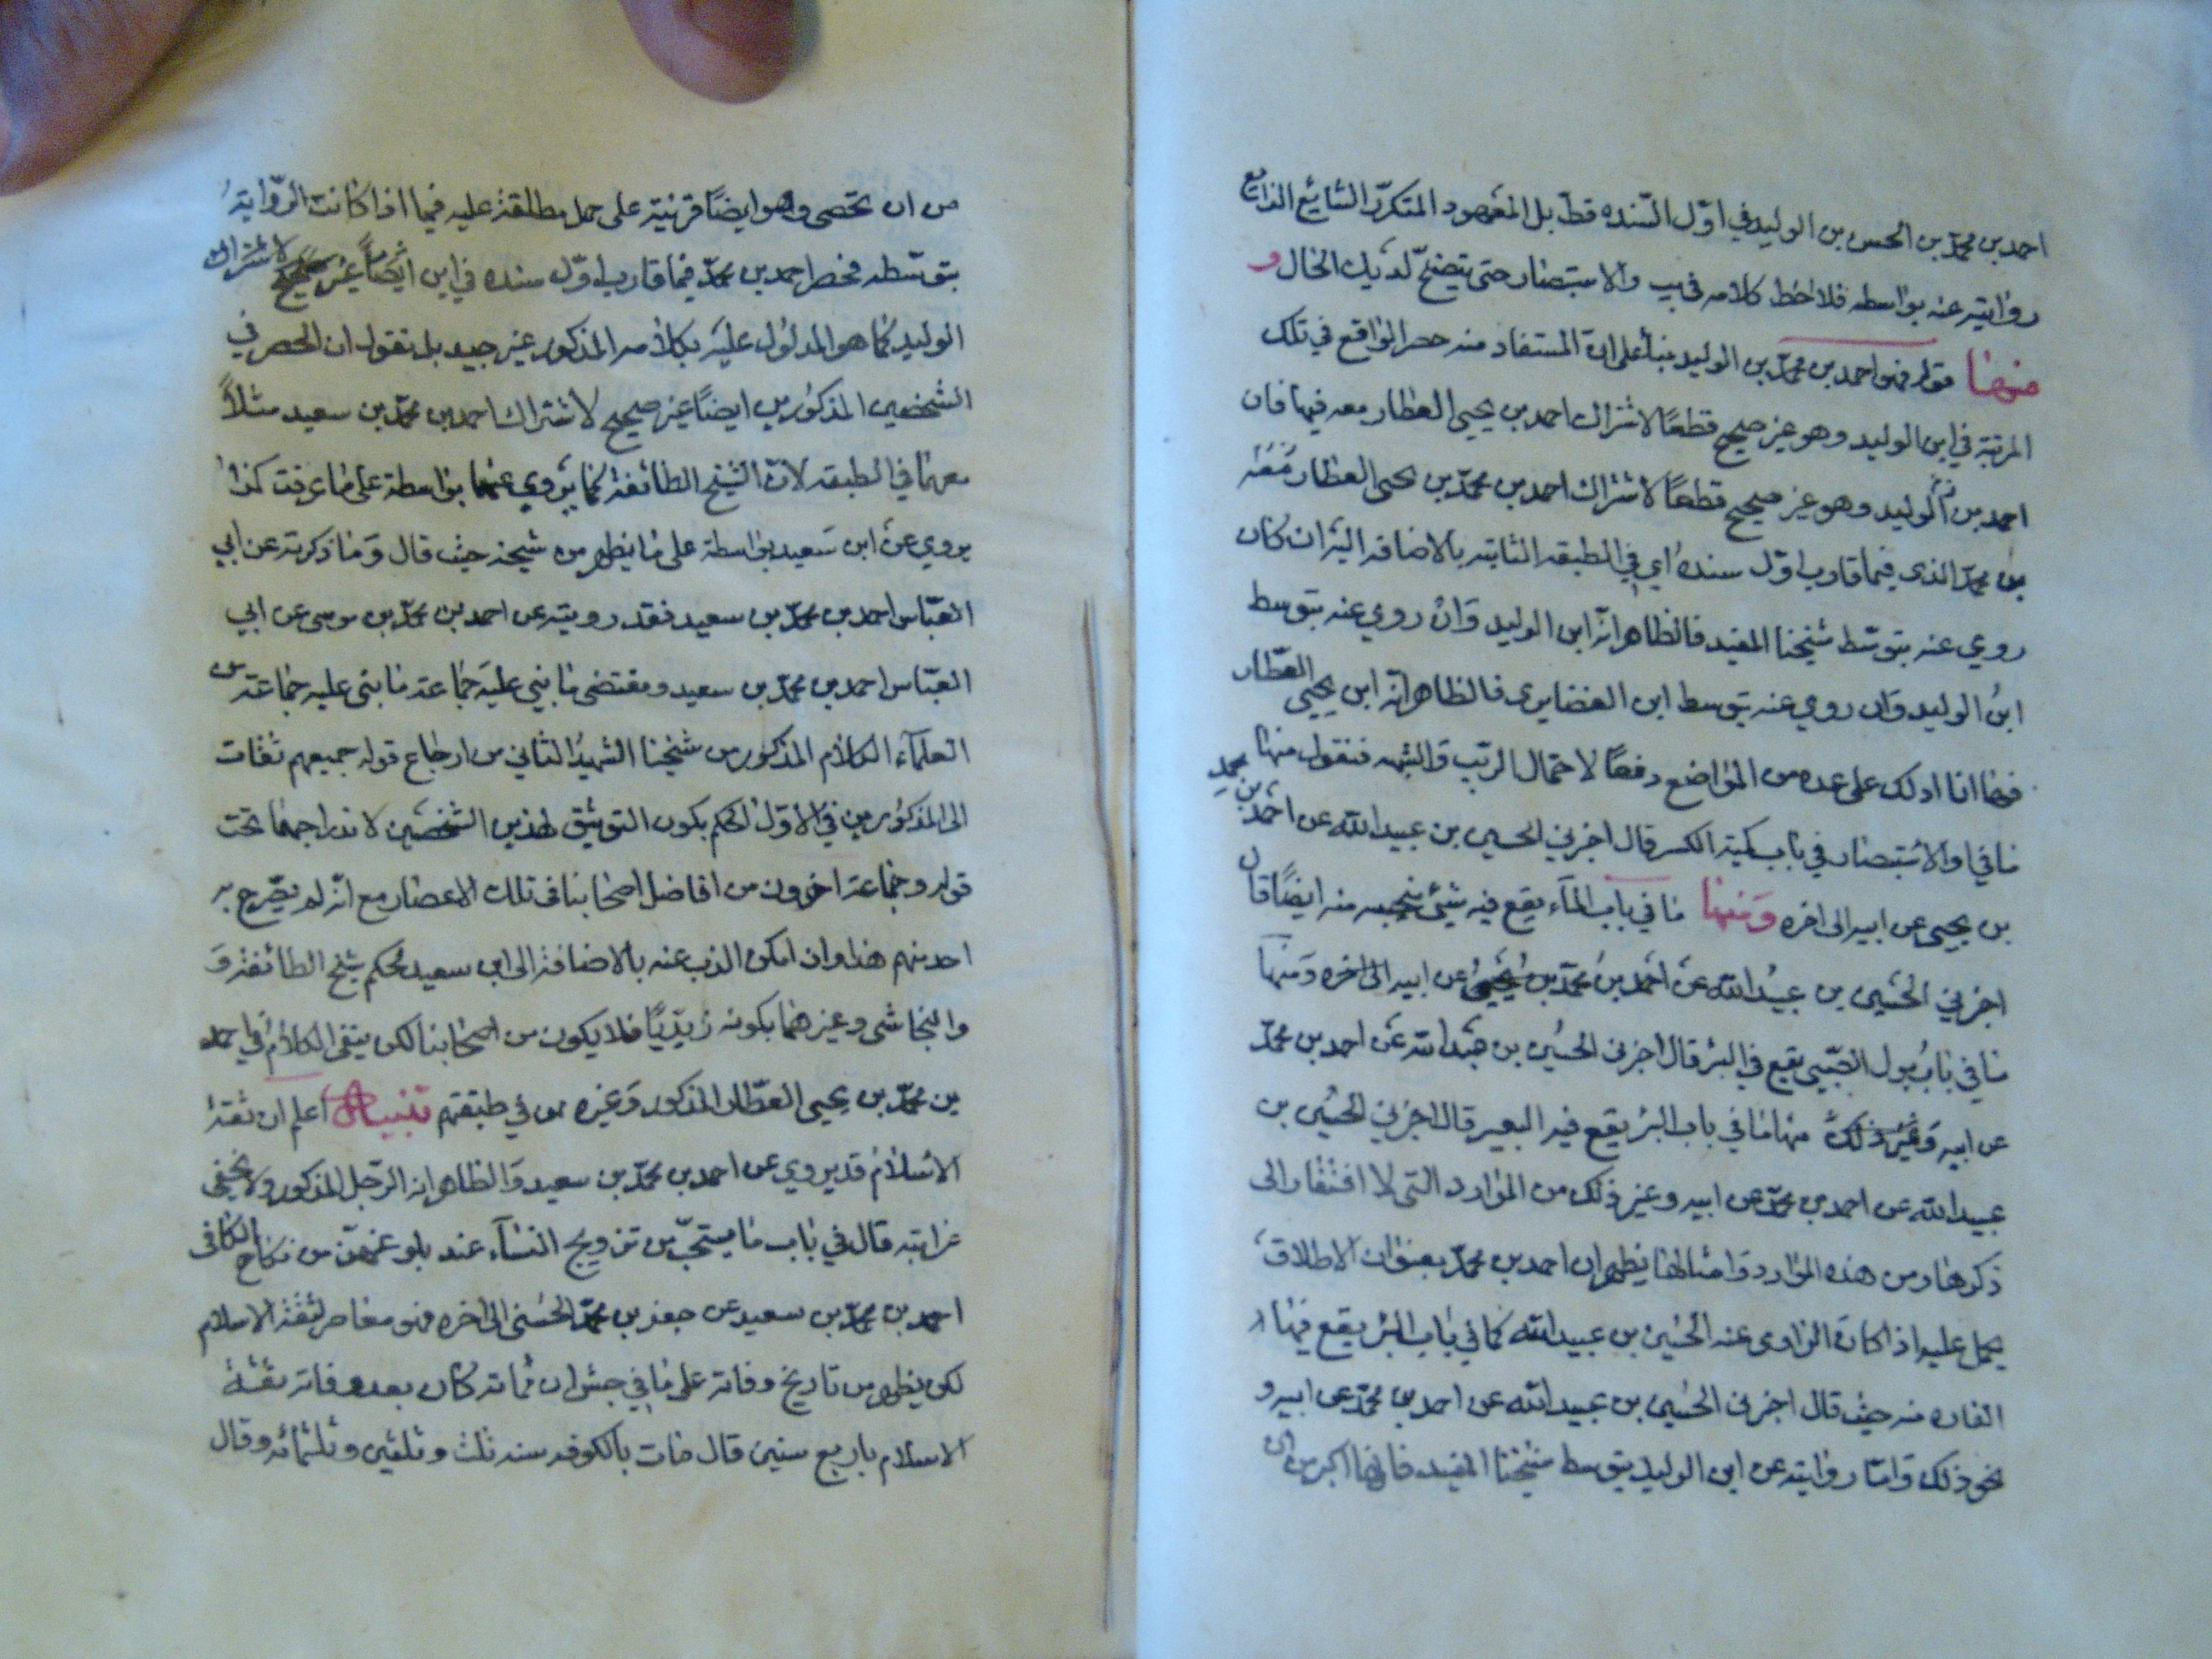 احمد بن محمد بن الحسن بن الوليد في اوّل السّنده قطّ بل المعهود المتكرّر الشايع الذايع
روايته عنه بواسطه فلاحظ كلامه في يب والاستبصار حتى يتضح لديك الحال و
منها قوله فهو احمد بن محمّد بن الوليد بناءً على انّ المستفاد منه حصر الواقع في تلك
المرتبة في ابن الوليد وهو غير صحيح قطعًا لاشتراك احمد بن يحيى العطار معه فيها فان
احمد بن الوليد وهو غير صحيح قطعًا لاشتراك احمد بن محمّد بن يحيى العطار معه
بن محمّد الذي فيما قارب اوّل سنده اي في الطبقه الثانيه بالاضافه اليه ان كان
روي عنه بتوسّط شيخنا المفيد فالظاهر انّه ابن الوليد وَان روي عنه بتوسط
ابنُ الوليد وَان روي عنه بتوسط ابن الغضايرى فالظاهر انّه ابن يحيى العطّار
فها انا ادلك على عده من المواضع دفعًا لاحتمال الريب وَالشبهه فنقول منها
ما في والاستبصار في باب كمية الكر قال اخبرني الحسين بن عبيد الله عن احمد بن محمد
بن يحيى عن ابيه الى اخره وَمنها ما في باب المآء يقع فيه شئ ينجسه منه ايضًا قال
اخبرني الحسَين بن عبيدُ الله عن احمد بنُ محمّد بن يُحيىُ عن ابيه الى اخره وَمنها
ما في باب بول الصّبيّ يقع في البئر قال اخبرنى الحسُين بن عبيد الله عَن احمد بن محمّد
عن ابيه وَغيرُ ذلكَ منها ما في باب البئر يقع فيه البعير قال اخبرني الحسُين بن
عبيد الله عن احمد بن محمّد عن ابيه وغير ذلك من الموارد التى لا افتقار الى
ذكرها ومن هذه الموارد وَامثالها يظهر ان احمد بن محمّد بعنوان الاطلاق
يحمل عليه اذا كان الراوى عنه الحسُين بن عبيد الله كما في باب البئر يقع فيها
الفاره منه حيث قال اخبرنى الحسُين بن عبيد الله عن احمد بن محمّد عن ابيه و
نحو ذلك وَامّا روايته عن ابن الوليد بتوسط شيخنا المفيد فانّها اكثر من ان
من ان تحصى وهو ايضًا قرينة على حمل مطلقة عليه فيما اذا كانت الرّواية
بتوسّطه فحصر احمد بن محمّد فيما قارب اوّل سنده في ابن ايضًا غير صحيح لاشتراك
الوليد كما هو المدلول عليَه بكلامه المذكور غير جيد بل نقول ان الحصر في
الشخصين المذكورين ايضًا غير صحيح لاشتراك احمد بن محمّد بن سعيد مثلًا
معهما في الطبقه لانّ الشيخ الطائفة كما يروي عنهما بواسطة على ما عرفت كذا
يروي عن ابن سَعيد بواسطة على ما يظهر من شيخه حيث قال وَما ذكرته عن ابي
العبّاس احمد بن محمّد بن سعيد فقد رويته عن احمد بن محمّد بن موسى عن ابي
العبّاس احمد بن محمّد بن سعيد ومقتضى ما بني عليَه جماعة ما بنى عليه جماعة من
العلمآء الكلام المذكور من شيخنا الشهيد الثاني من ارجاع قوله جميعهم ثقات
الى المذكورين في الاوّل الحكم بكون التوثيق لهذين الشخصَين لاندراجهما تحت
قوله وجماعة اخرون من افاضل اصحابنا في تلك الاعصار مع انّه لم يصّرح به
احد منهم هذا وان امكن الذب عنه بالاضافة الى ابن سعيد لحكم شيخ الطائفة وَ
والنجاشى وغيرهما بكونه زيديّا فلا يكون من اصحابنا لكن يبقى الكلام في احمد
بن محمّد بن يحيى العطّار المذكور وَغيره من في طبقتهم تنبيه اعلم ان ثقة
الاسلام قد يروي عن احمد بن محمّد بن سعيد وَالظاهر انه الرّجل المذكور ولا يخفى
غرابته قال في باب ما يستحبّ من تزويج النسآء عند بلوغهنّ من نكاح الكافى
احمد بن محمّد بن سعيد عن جعفر بن محمّد الحسنى الى اخره فهو معاصر لثقة الاسلام
لكن يظهر من تاريخ وفاته على ما في جش ان مماته كان بعد وفاته ثقة
الاسلام باربع سنين قال مات بالكوفه سنه ثلث وثلثين وثلثمائه وقال